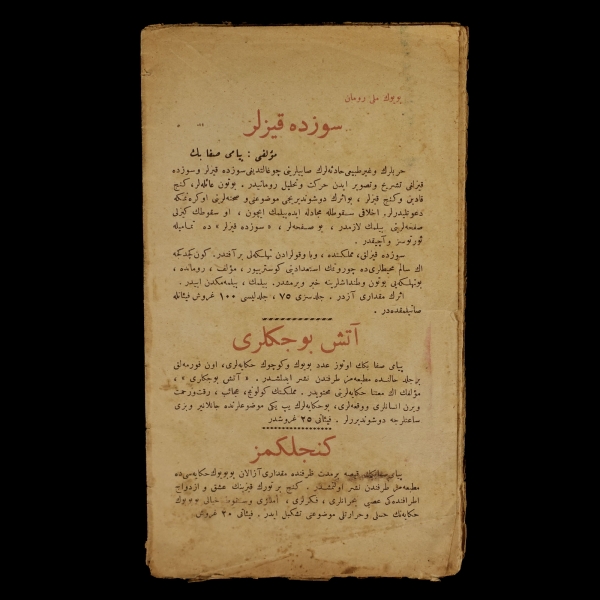 بویوك ملی رومان
سوزده قیزلر
مؤلفی : پیامی صفا بك
حربلرك وغیرطبیعی حادثه‌لرك صایلرینی چوغالتدیغی سوزده قیزلر وسوزده
قیزلغی تشریح وتصویر ایدن حركت وتحلیل رومانیدر . بوتون عائله‌لر، كنج
قادین وكنج قیزلر ، بواثرك دوشوندیریجی موضوعنی و صحنه‌لرینی اوكرنمكه
دعوتلیدرلر. اخلاقی سقوطله مجادله ایده‌بیلمك ایچون ، او سقوطك كیزلی
صفحه‌لرینی بیلمك لازمدر ، بو صفحه‌لر ، « سوزده قیزلر » ده تمامیله
ئورتوسز وآچیقدر .
سوزده قیزلق، مملكتنده ، وبا وقولرادن تهلكه‌لی برآفتدر. كون كچدكجه
اك سالم محیطلری‌ده چوروتمك استعدادینی كوسترییور ، مؤلف ، رومانده ،
بوتهلكه‌یی بوتون وطنداشلرینه خبر ویرمشدر. بیلمك ، بیلمه‌مكدن اییدر .
اثرك مقداری آزدر . جلدسزی ٧٥ ، جلدلیسی ١٠٠ غروش فیئاتله
صاتیلمقده‌در .
آتش بوجكلری
پیامی صفا بكك اوتوز عدد بویوك وكوچوك حكایه‌لری، اون فورمه‌لق
بر جلد حالنده مطبعه‌مز طرفندن نشر ایدلمشدر . « آتش بوجكلری » ،
مؤلفك اك معتنا حكایه‌لرینی محتویدر. مملكتك كولونج، عجائب ، رقت ومرحمت
ویرن انسانلری ووقعه‌لری، بوحكایه‌لرك یپ یكی موضوعلرنده جانلانیر وبزی
ساعتلرجه دوشوندیررلر . فیئاتی ٢٥ غروشدر
كنجلكمز
پیامی صفا بكك قیصه بر مدت ظرفنده مقداری آزالان بویوك حكایه‌سی‌ده
مطبعه‌مز طرفندن نشر اولنمشدر . كنج بر تورك قیزینك عشق و ازدواج
اطرافنده‌كی عصبی بحرانلری ، فكرلری ، املاری
حكایه‌نك حسلی وحرارتلی موضوعنی تشكیل ایدر . فیئاتی ٢٠ غروش